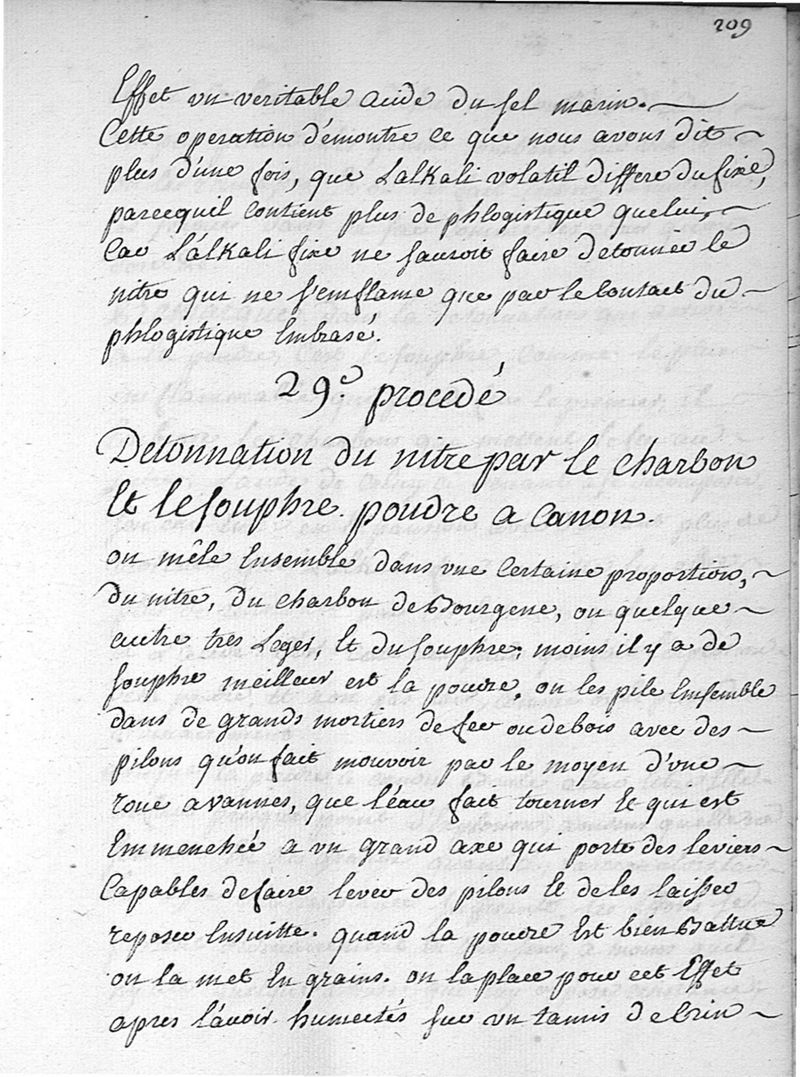 209
Effet un veritable acide du sel marin.
Cette operation démontre ce que nous avons dit
plus d'une fois, que L'alkali volatil differe du fixe,
parcequil Contient plus de phlogistique que lui,
Car L'alkali fixe ne sauroit faire detonner le
nitre qui ne s'emflame que par le Contact du
phlogistique Embrasé.
29.e procedé
Detonnation du nitre par le charbon
Et le souphre. poudre a Canon.
on mêle Ensemble dans une Certaine proportion,
du nitre, du charbon de Bourgene, ou quelque
autre très Leger, Et du souphre; moins il y a de
souphre meilleur est la poudre, on les pile Ensemble
dans de grands mortiers de fer ou de bois avec des
pilons qu'on fait mouvoir par le moyen d'une
roue a vannes, que l'éau fait tourner Et qui est
Emmenchée a un grand axe qui porte des leviers
Capables de faire lever des pilons Et de les laisser
reposer Ensuitte. quand la poudre Est bien Battue
on la met En grains. on la place pour cet Effet
apres l'avoir humectés sur un tamis de Crin